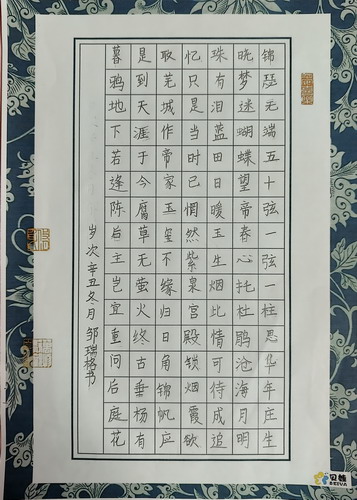 锦瑟无端五十弦一弦一柱思华年庄生
晓梦迷蝴蝶望帝春心托杜鹃沧海月明
珠有泪蓝田日暖玉生烟此情可待成追
忆只是当时已惘然紫泉宫殿锁烟霞欲
取芜城作帝家玉玺不缘归日角锦帆应
是到天涯于今腐草无萤火终古垂杨有
暮鸦地下若逢陈后主岂宜重问后庭花
岁次辛丑冬月 邹瑞格书